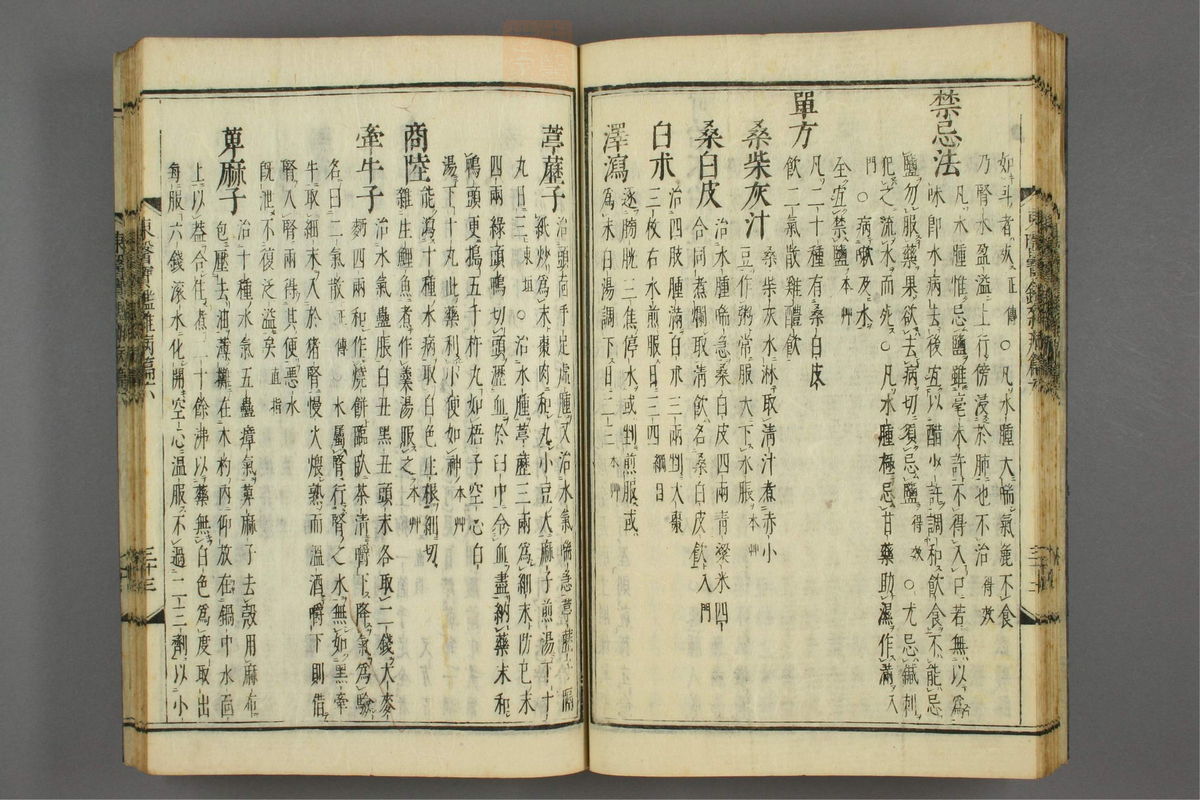 如斗者死 正傳 ○凡水腫大喘氣麁不食
乃腎水盈溢上行傍浸於肺也不治 得效
禁忌法 凡水腫惟忌鹽雖毫末許不得入口若無以爲
味即水病去後宜以醋少許調和飲食不能忌
鹽勿服藥果欲去病切須忌鹽 得效 ○尤忌鍼刺
犯之流水而死○凡水腫極忌甘藥助濕作滿 入
門 ○病嗽及水
全宜禁鹽 本草
單方 凡二十種有桑白皮
飲二氣散雞醴飲
桑柴灰汁 桑柴灰水淋取清汁煮赤小
豆作粥常服大下水脹 本草
桑白皮 治水腫喘急桑白皮四兩青粱米四
合同煮爛取清飲名桑白皮飲 入門
白朮 治四肢腫滿白朮三兩剉大棗
三枚右水煎服日三四 綱目
澤瀉 逐膀胱三焦停水或剉煎服或
爲末白湯調下日二三 本草
葶藶子 治頭面手足虛腫又治水氣喘急葶藶子隔
紙炒爲末棗肉和丸小豆大麻子煎湯下十
丸日三 東垣 ○治水腫葶藶三兩爲細末防巳末
四兩綠頭鴨切頭瀝血於臼中令血盡納藥末和
鴨頭更搗五千杵丸如梧子空心白
湯下十丸此藥利小便如神 本草
商陸 能瀉十種水病取白色生根細切
雜生鯉魚煮作羹湯服之 本草
牽牛子 治水氣蠱脹白丑黑丑頭末各取二錢大麥
麪四兩和作燒餠臨臥茶清嚼下降氣爲驗
名曰二氣散 正傳 水屬腎行腎之水無如黑牽
牛取細末入於猪腎慢火煨熟而溫酒嚼下則借
腎入腎兩得其便惡水
旣泄不復泛溢矣 直指
萆麻子 治十種水氣五蠱瘴氣萆麻子去殼用麻布
包壓去油薄攤在木杓內仰放在鍋中水面
上以葢合住煮二十餘沸以藥無白色爲度取出
每服六錢滾水化開空心溫服不過二三劑以小
東醫寶鑑雜病篇六
三十三